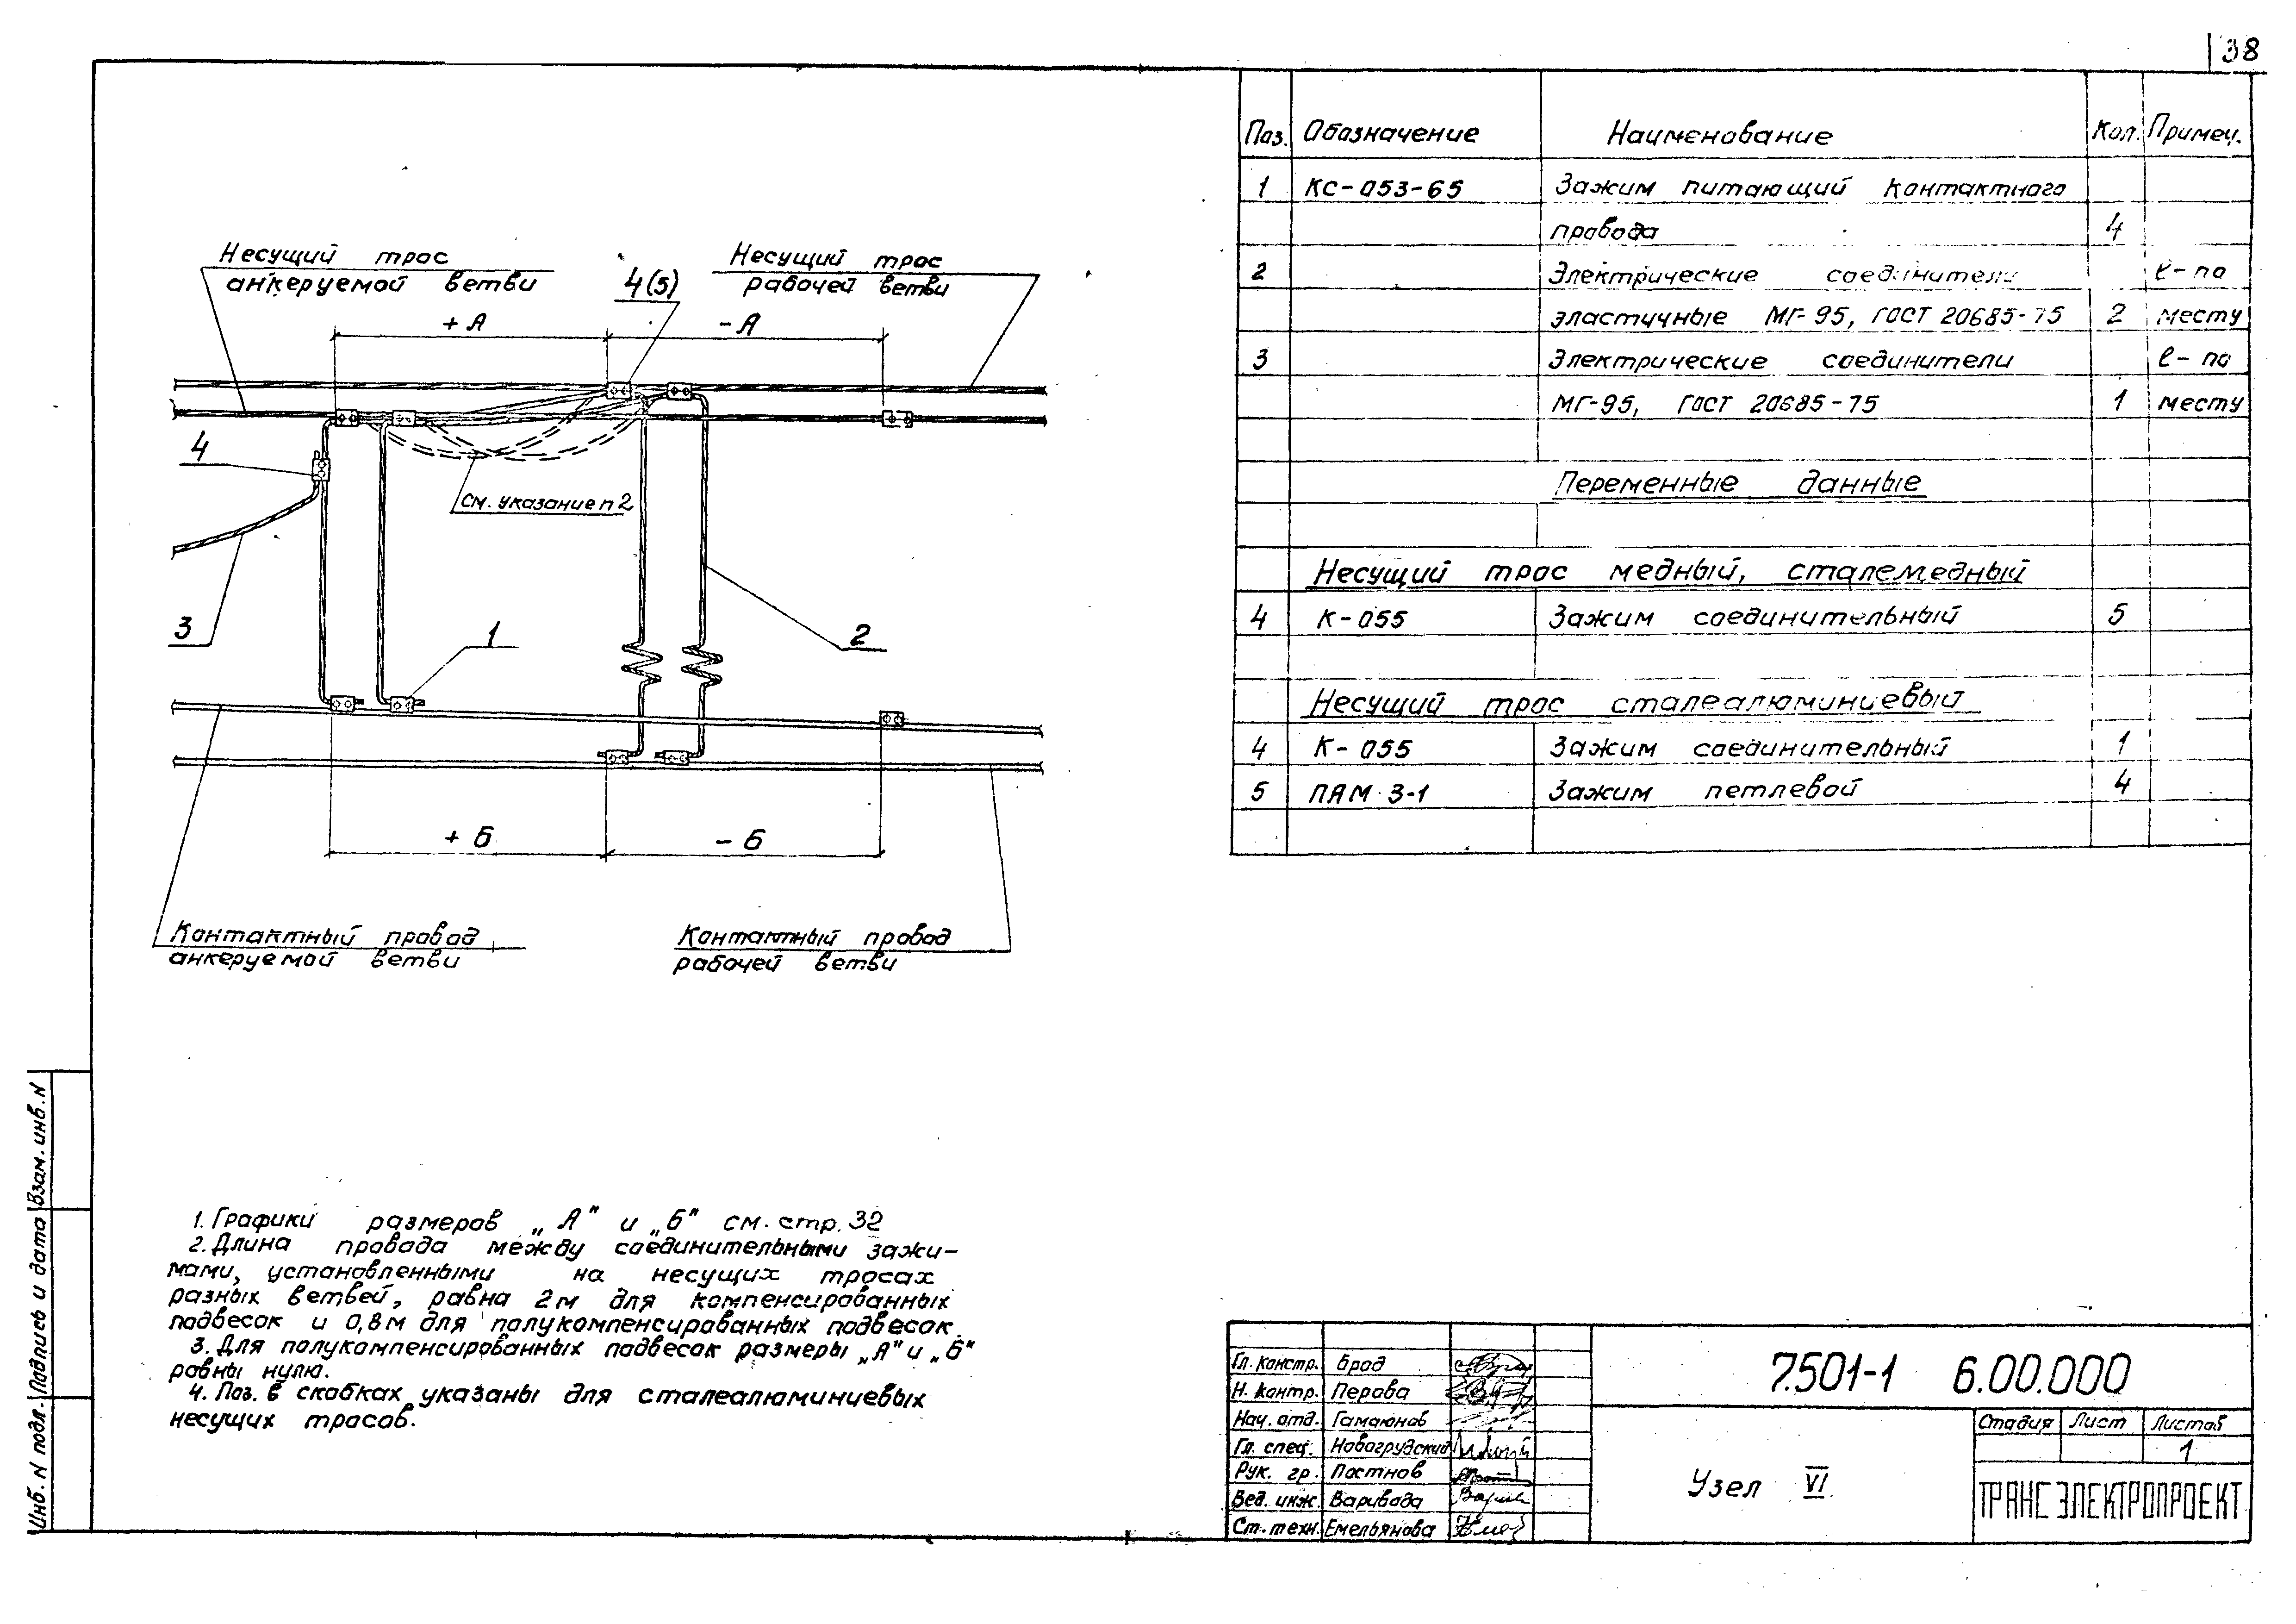 38
Несущий трос
анкеруемой ветви
4(5)
Несущий трос
рабочей ветви
+ А
- А
4
См. указание п 2
3
1
2
+ Б
- Б
Контактный провод
анкеруемой ветви
Контактный провод
рабочей ветви
Поз. Обозначение Наименование Кол. Примеч.
1 КС-053-65 Зажим питающий контактного
провода 4
2 Электрические соединители ℓ-по
эластичные МГ-95, ГОСТ 20685-75 2 месту
3 Электрические соединители ℓ-по
МГ-95, ГОСТ 20685-75 1 месту
Переменные данные
Несущий трос медный, сталемедный
4 К-055 Зажим соединительный 5
Несущий трос сталеалюминиевый
4 К-055 Зажим соединительный 1
5 ПАМ 3-1 Зажим петлевой 4
1. Графики размеров „А" и „Б" см. стр. 32
2. Длина провода между соединительными зажи-
мами, установленными на несущих тросах
разных ветвей, равна 2м для компенсированных
подвесок и 0,8м для полукомпенсированных подвесок.
3. Для полукомпенсированных подвесок размеры „А" и „Б"
равны нулю.
4. Поз. в скобках указаны для сталеалюминиевых
несущих тросов.
Инв. N подл. Подпись и дата Взам. инв. N
Гл. констр. Брод
Н. контр. Перова
Нач. отд. Гамаюнов
Гл. спец. Новогрудский
Рук. гр. Постнов
Вед. инж. Варивода
Ст. техн. Емельянова
7.501-1 6.00.000
Узел VI
Стадия Лист Листов
1
ТРАНСЭЛЕКТРОПРОЕКТ